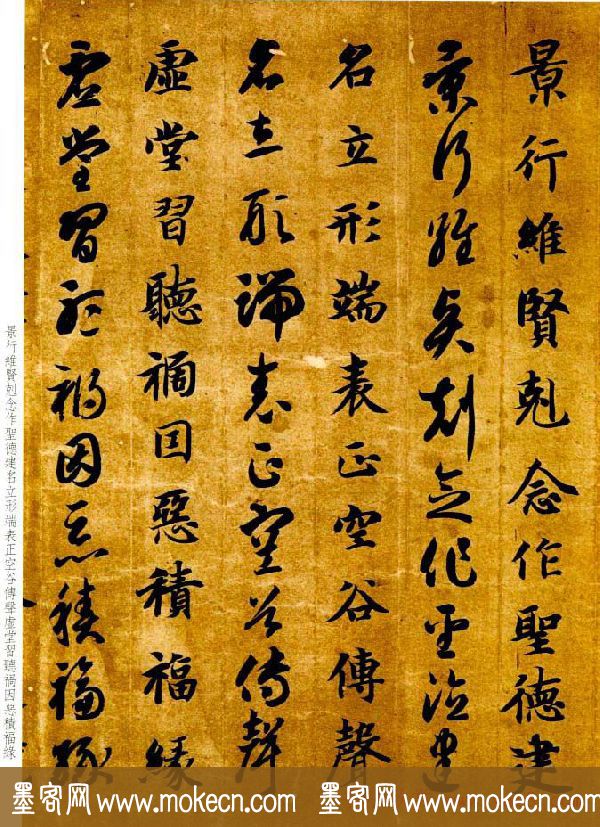 景行維賢剋念作聖德建
景行維賢剋念作聖德建
名立形端表正空谷傳聲
名立形端表正空谷傳聲
虛堂習聽禍因惡積福緣
虛堂習聽禍因惡積福緣
景行維賢剋念作聖德建名立形端表正空谷傳聲虛堂習聽禍因惡積福緣
墨客网 www.mokecn.com 墨客网 www.mokecn.com